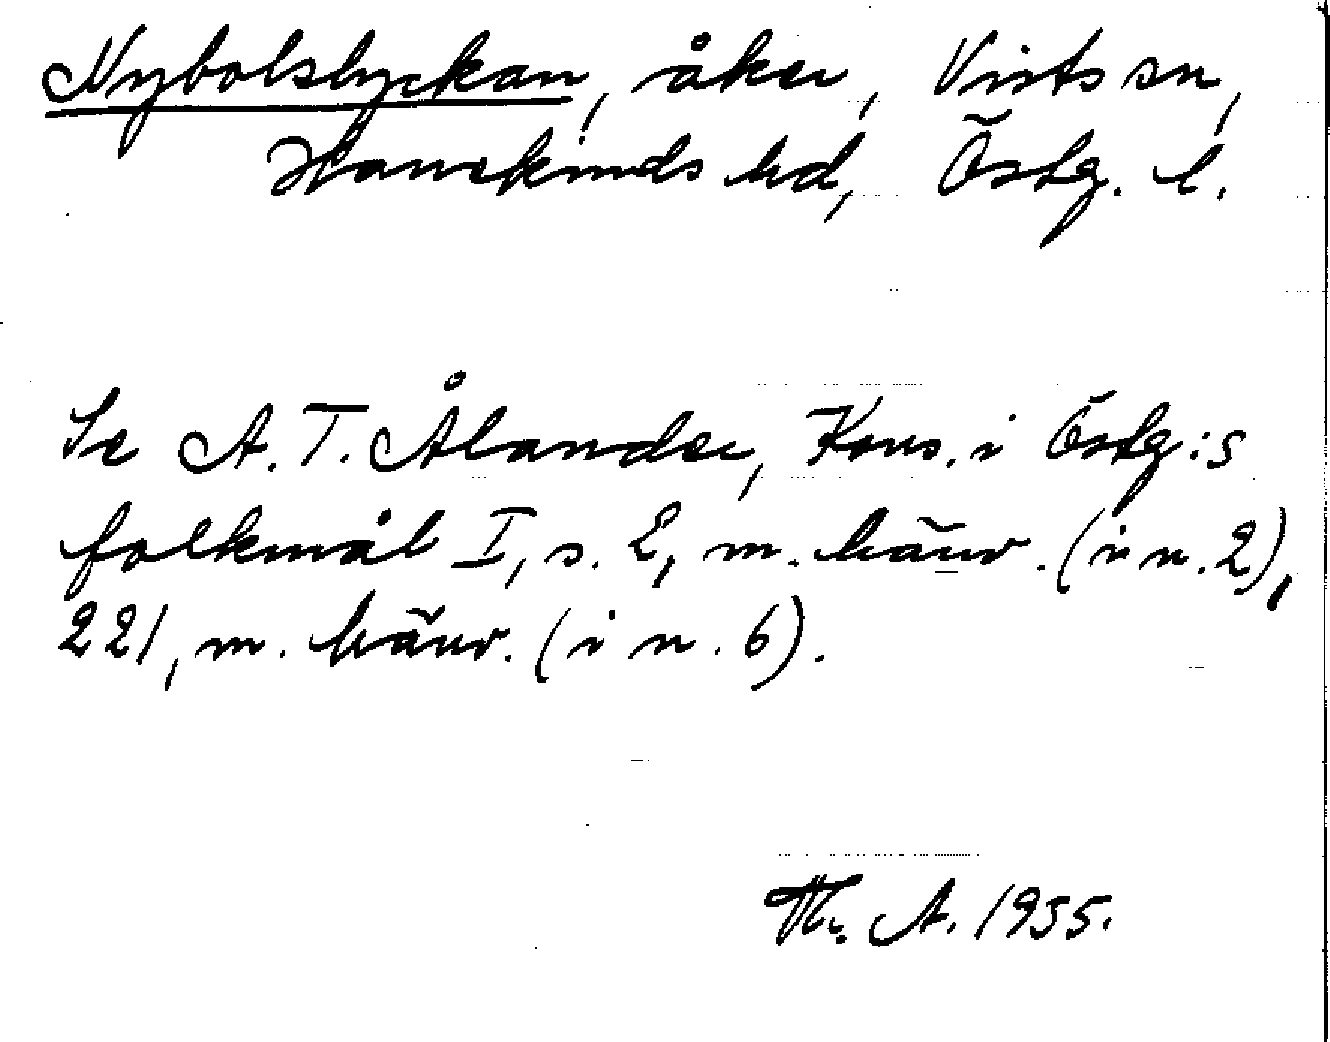 Nybolslyckan, åker, Vists sn,
Hanekinds hd, Östg. l.
Se A. T. Ålander, Kons. i Östg:s
folkmål I, s. 2, m. hänv. (i n. 2),
221, m. hänv. (i n. 6).
Th. A. 1935.